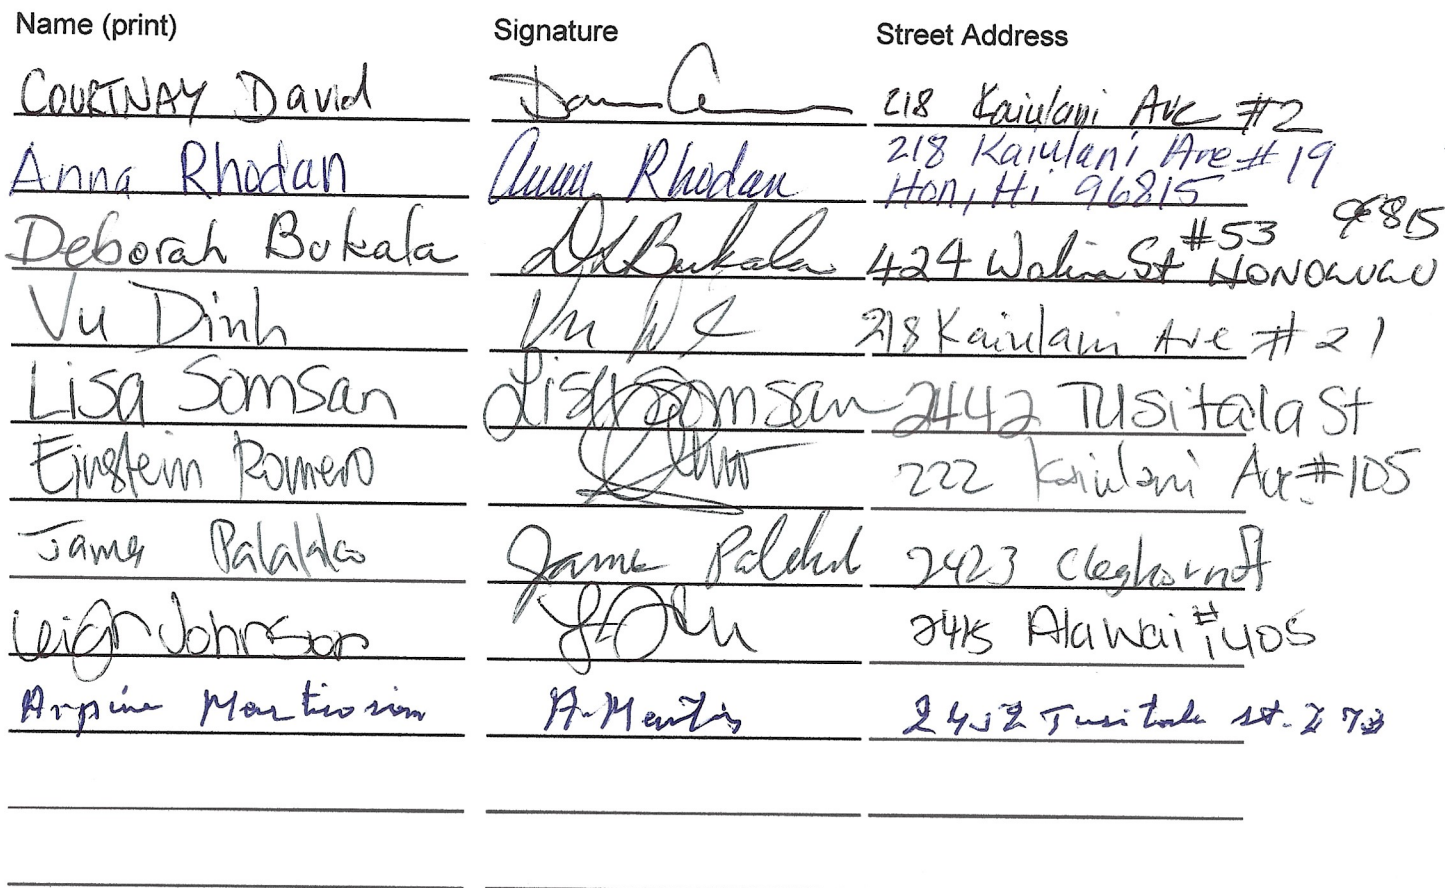 Name (print) Signature Street Address
COURTNAY David 218 Kaiulani Ave #2
Anna Rhodan Anna Rhodan 218 Kaiulani Ave #19
Hon, Hi 96815
Deborah Bukala DLBukala 424 Walina St #53 HONOLULU 96815
Vu Dinh Vu 218 Kaiulani Ave #21
Lisa Somsan Lisa Somsan 2442 Tusitala St
Einstein Romero 222 Kaiulani Ave #105
James James 2423 Cleghorn St
Leigh Johnson 2415 Ala Wai #1405
Arpine Martirosian 2452 Tusitala st.